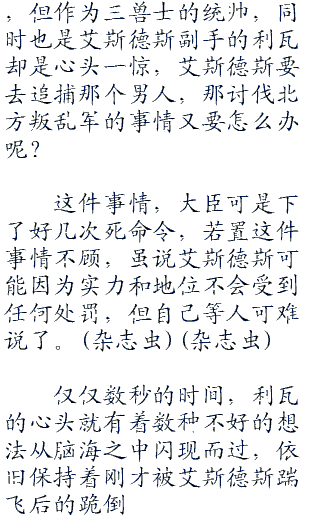 ，但作为三兽士的统帅，同
时也是艾斯德斯副手的利瓦
却是心头一惊，艾斯德斯要
去追捕那个男人，那讨伐北
方叛乱军的事情又要怎么办
呢？
这件事情，大臣可是下
了好几次死命令，若置这件
事情不顾，虽说艾斯德斯可
能因为实力和地位不会受到
任何处罚，但自己等人可难
说了。(杂志虫)(杂志虫)
仅仅数秒的时间，利瓦
的心头就有着数种不好的想
法从脑海之中闪现而过，依
旧保持着刚才被艾斯德斯踹
飞后的跪倒